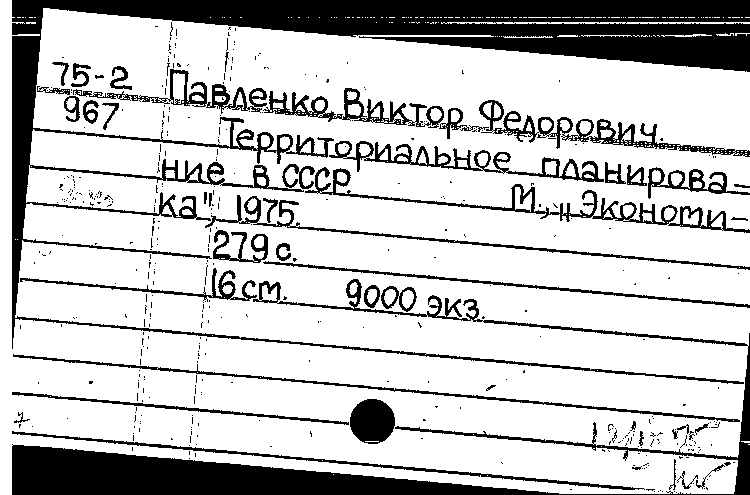 75-2 Павленко, Виктор Федорович.
967 Территориальное планирова-
ние в СССР. М., "Экономи-
ка", 1975.
279 с.
16 см. 9000 экз.